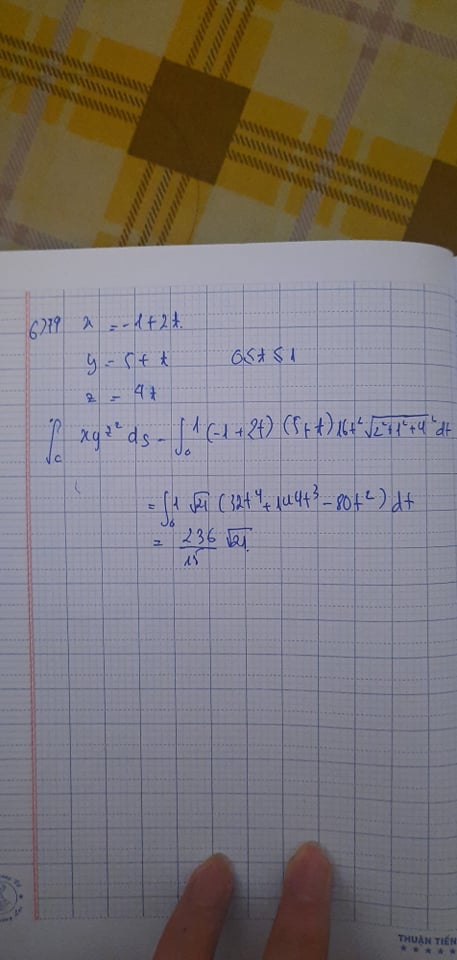 6)79 x = -1+2t.
y = 5+t 0≤t≤1
z = 4t
∫_C xyz² ds = ∫_0^1 (-1+2t) (5+t) 16t² √(2²+1²+4²) dt
= ∫_0^1 √21 (32t⁴+144t³-80t²) dt
= 236/15 √21.
THUẬN TIẾN